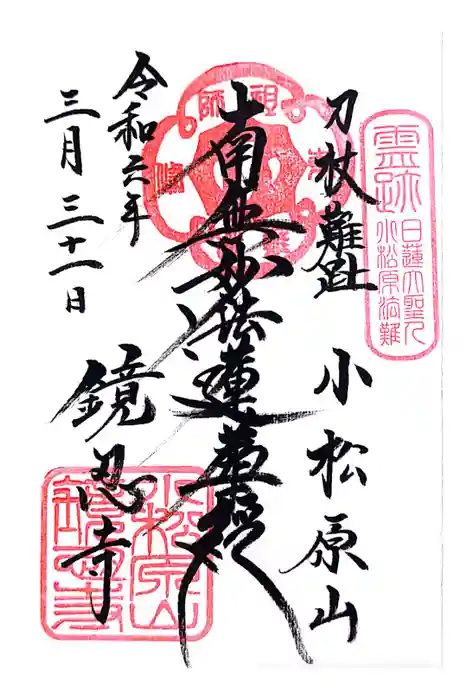 霊跡
日蓮大聖人
小松原法難
刀杖難趾
小松原山
南無妙法蓮華経
令和六年
三月三十一日
鏡忍寺
小松原山
鏡忍寺
祖師